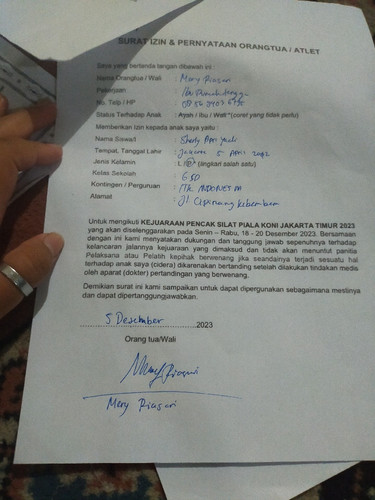 SURAT IZIN & PERNYATAAN ORANGTUA / ATLET
Saya yang bertanda tangan dibawah ini
Nama Orangtua / Wali : Mery Riasari
Pekerjaan : Ibu Rumah tangga
No. Telp / HP :
Status Terhadap Anak : Ayah / Ibu / Wali *(coret yang tidak perlu)
Memberikan izin kepada anak saya yaitu :
Nama Siswa/i :
Tempat, Tanggal Lahir : Jakarta 5 April
Jenis Kelamin : L / P (lingkari salah satu)
Kelas Sekolah : 6 SD
Kontingen / Perguruan : INDONESIA
Alamat : Jl Cipinang kebembem
Untuk mengikuti KEJUARAAN PENCAK SILAT PIALA KONI JAKARTA TIMUR 2023
yang akan diselenggarakan pada Senin – Rabu, 18 - 20 Desember 2023. Bersamaan
dengan ini kami menyatakan dukungan dan tanggung jawab sepenuhnya terhadap
kelancaran jalannya kejuaraan yang dimaksud dan tidak akan menuntut panitia
Pelaksana atau Pelatih kepihak berwenang jika seandainya terjadi sesuatu hal
terhadap anak saya (cidera) dikarenakan bertanding setelah dilakukan tindakan medis
oleh aparat (dokter) pertandingan yang berwenang.
Demikian surat ini kami sampaikan untuk dapat dipergunakan sebagaimana mestinya
dan dapat dipertanggungjawabkan.
5 Desember 2023
Orang tua/Wali
Mery Riasari